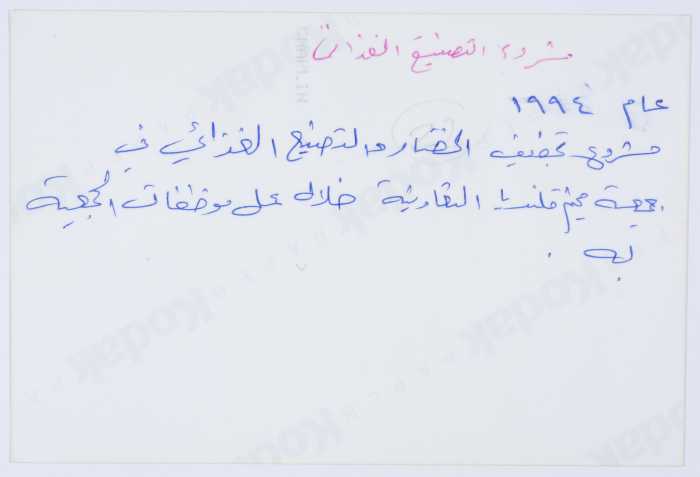 مشروع التصنيع الغذائي
عام ١٩٩٤
مشروع تجفيف الخضار والتصنيع الغذائي في
جمعية مخيم قلنديا التعاونية خلال عمل موظفات الجمعية
به .
Kodak
Kodak
Kodak
Kodak
Kodak